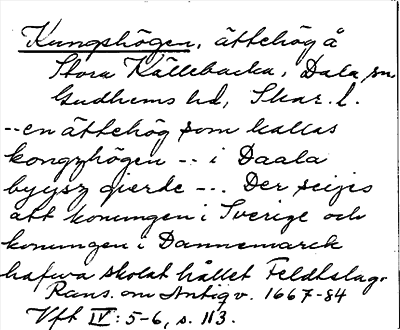 Kungshögen, ättehög å
Stora Källebacka, Dala sn
Gudhems hd, Skar. l.
--en ättehög som kallas
kongzhögen -- i Daala
byysz gierde --. Der seijes
att konungen i Sverige och
konungen i Dannemarck
hafwa skolat hållet Feldtslag.
Rans. om Antiqv. 1667-84
Vft IV: 5-6, s. 113.